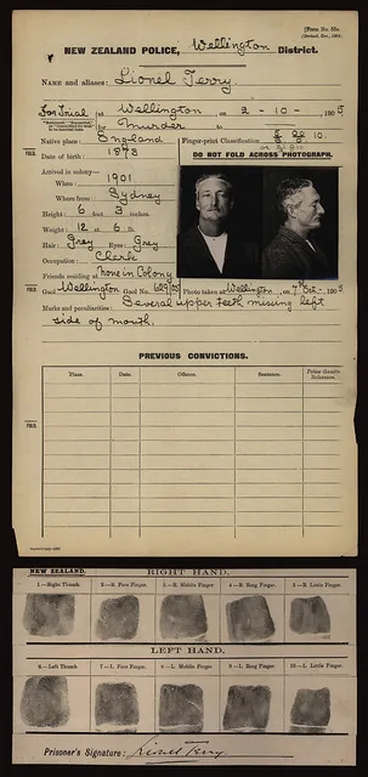 [Form No. 55c.
NEW ZEALAND POLICE, Wellington District.
NAME and aliases: Lionel Terry.
For Trial at Wellington on 2 - 10 - 1905
for Murder to
Native place: England Finger-print Classification 10.
Date of birth: 1873 DO NOT FOLD ACROSS PHOTOGRAPH.
Arrived in colony—
When: 1901
Where from: Sydney
Height: 6 feet 3 inches.
Weight: 12 st 6 lb.
Hair: Grey Eyes: Grey
Occupation: Clerk
Friends residing at none in Colony
Gaol Wellington Gaol No. Photo taken at Wellington, on 7th Oct-, 1905
Marks and peculiarities: Several upper teeth missing left
side of mouth.
PREVIOUS CONVICTIONS.
Place. Date. Offence. Sentence. Police Gazette Reference.
FOLD.
FOLD.
FOLD.
NEW ZEALAND. RIGHT HAND.
1.—Right Thumb. 2.—R. Fore Finger. 3.—R. Middle Finger 4.—R. Ring Finger. 5.—R. Little Finger.
LEFT HAND.
6.—Left Thumb 7.—L. Fore Finger. 8.—L. Middle Finger 9.—L. Ring Finger. 10.—L. Little Finger.
Prisoner's Signature: Lionel Terry.